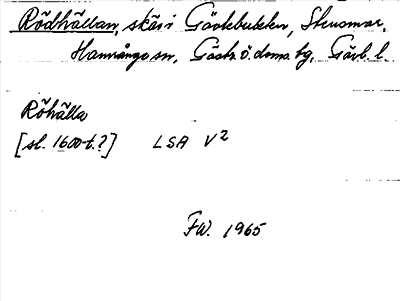 Rödhällan, skär i Gävlebukten, Stensmar,
Hamrånge sn, Gästr. ö. doms. tg, Gävl. l.
Röhälla
[sl. 1600-t.?] LSA V2
FW. 1965